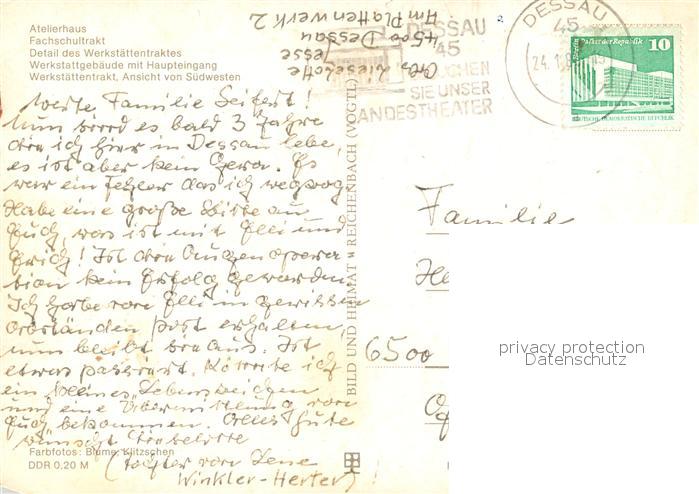 Atelierhaus
Fachschultrakt
Detail des Werkstättentraktes
Werkstattgebäude mit Haupteingang
Werkstättentrakt, Ansicht von Südwesten
Lieselotte
Jesse
4500 Dessau
Am Plattenwerk 2
DESSAU
45
SIE UNSER
LANDESTHEATER
DESSAU
45
Berlin Palast der Republik 10
DEUTSCHE DEMOKRATISCHE REPUBLIK
Werte Familie Seifert!
Nun wird es bald 3 Jahre
die ich hier in Dessau lebe,
es ist aber kein Gera. Es
war ein Fehler das ich wegzog
Habe eine große Bitte an
Euch, was ist mit Elli und
Erich! Ist die Augenopera
tion kein Erfolg geworden
Ich habe von Elli in gewissen
Abständen Post erhalten,
nun bleibt sie aus. Ist
etwas passiert. Könnte ich
ein kleines "Lebenszeichen
und eine Übermittlung von
Euch" bekommen. Alles Gute
wünscht
(Tochter von Lene
Winkler-Herter)!
Farbfotos: Blume, Klitzschen
DDR 0.20 M
BILD UND HEIMAT REICHENBACH (VOGTL)
Familie
6500
privacy protection
Datenschutz